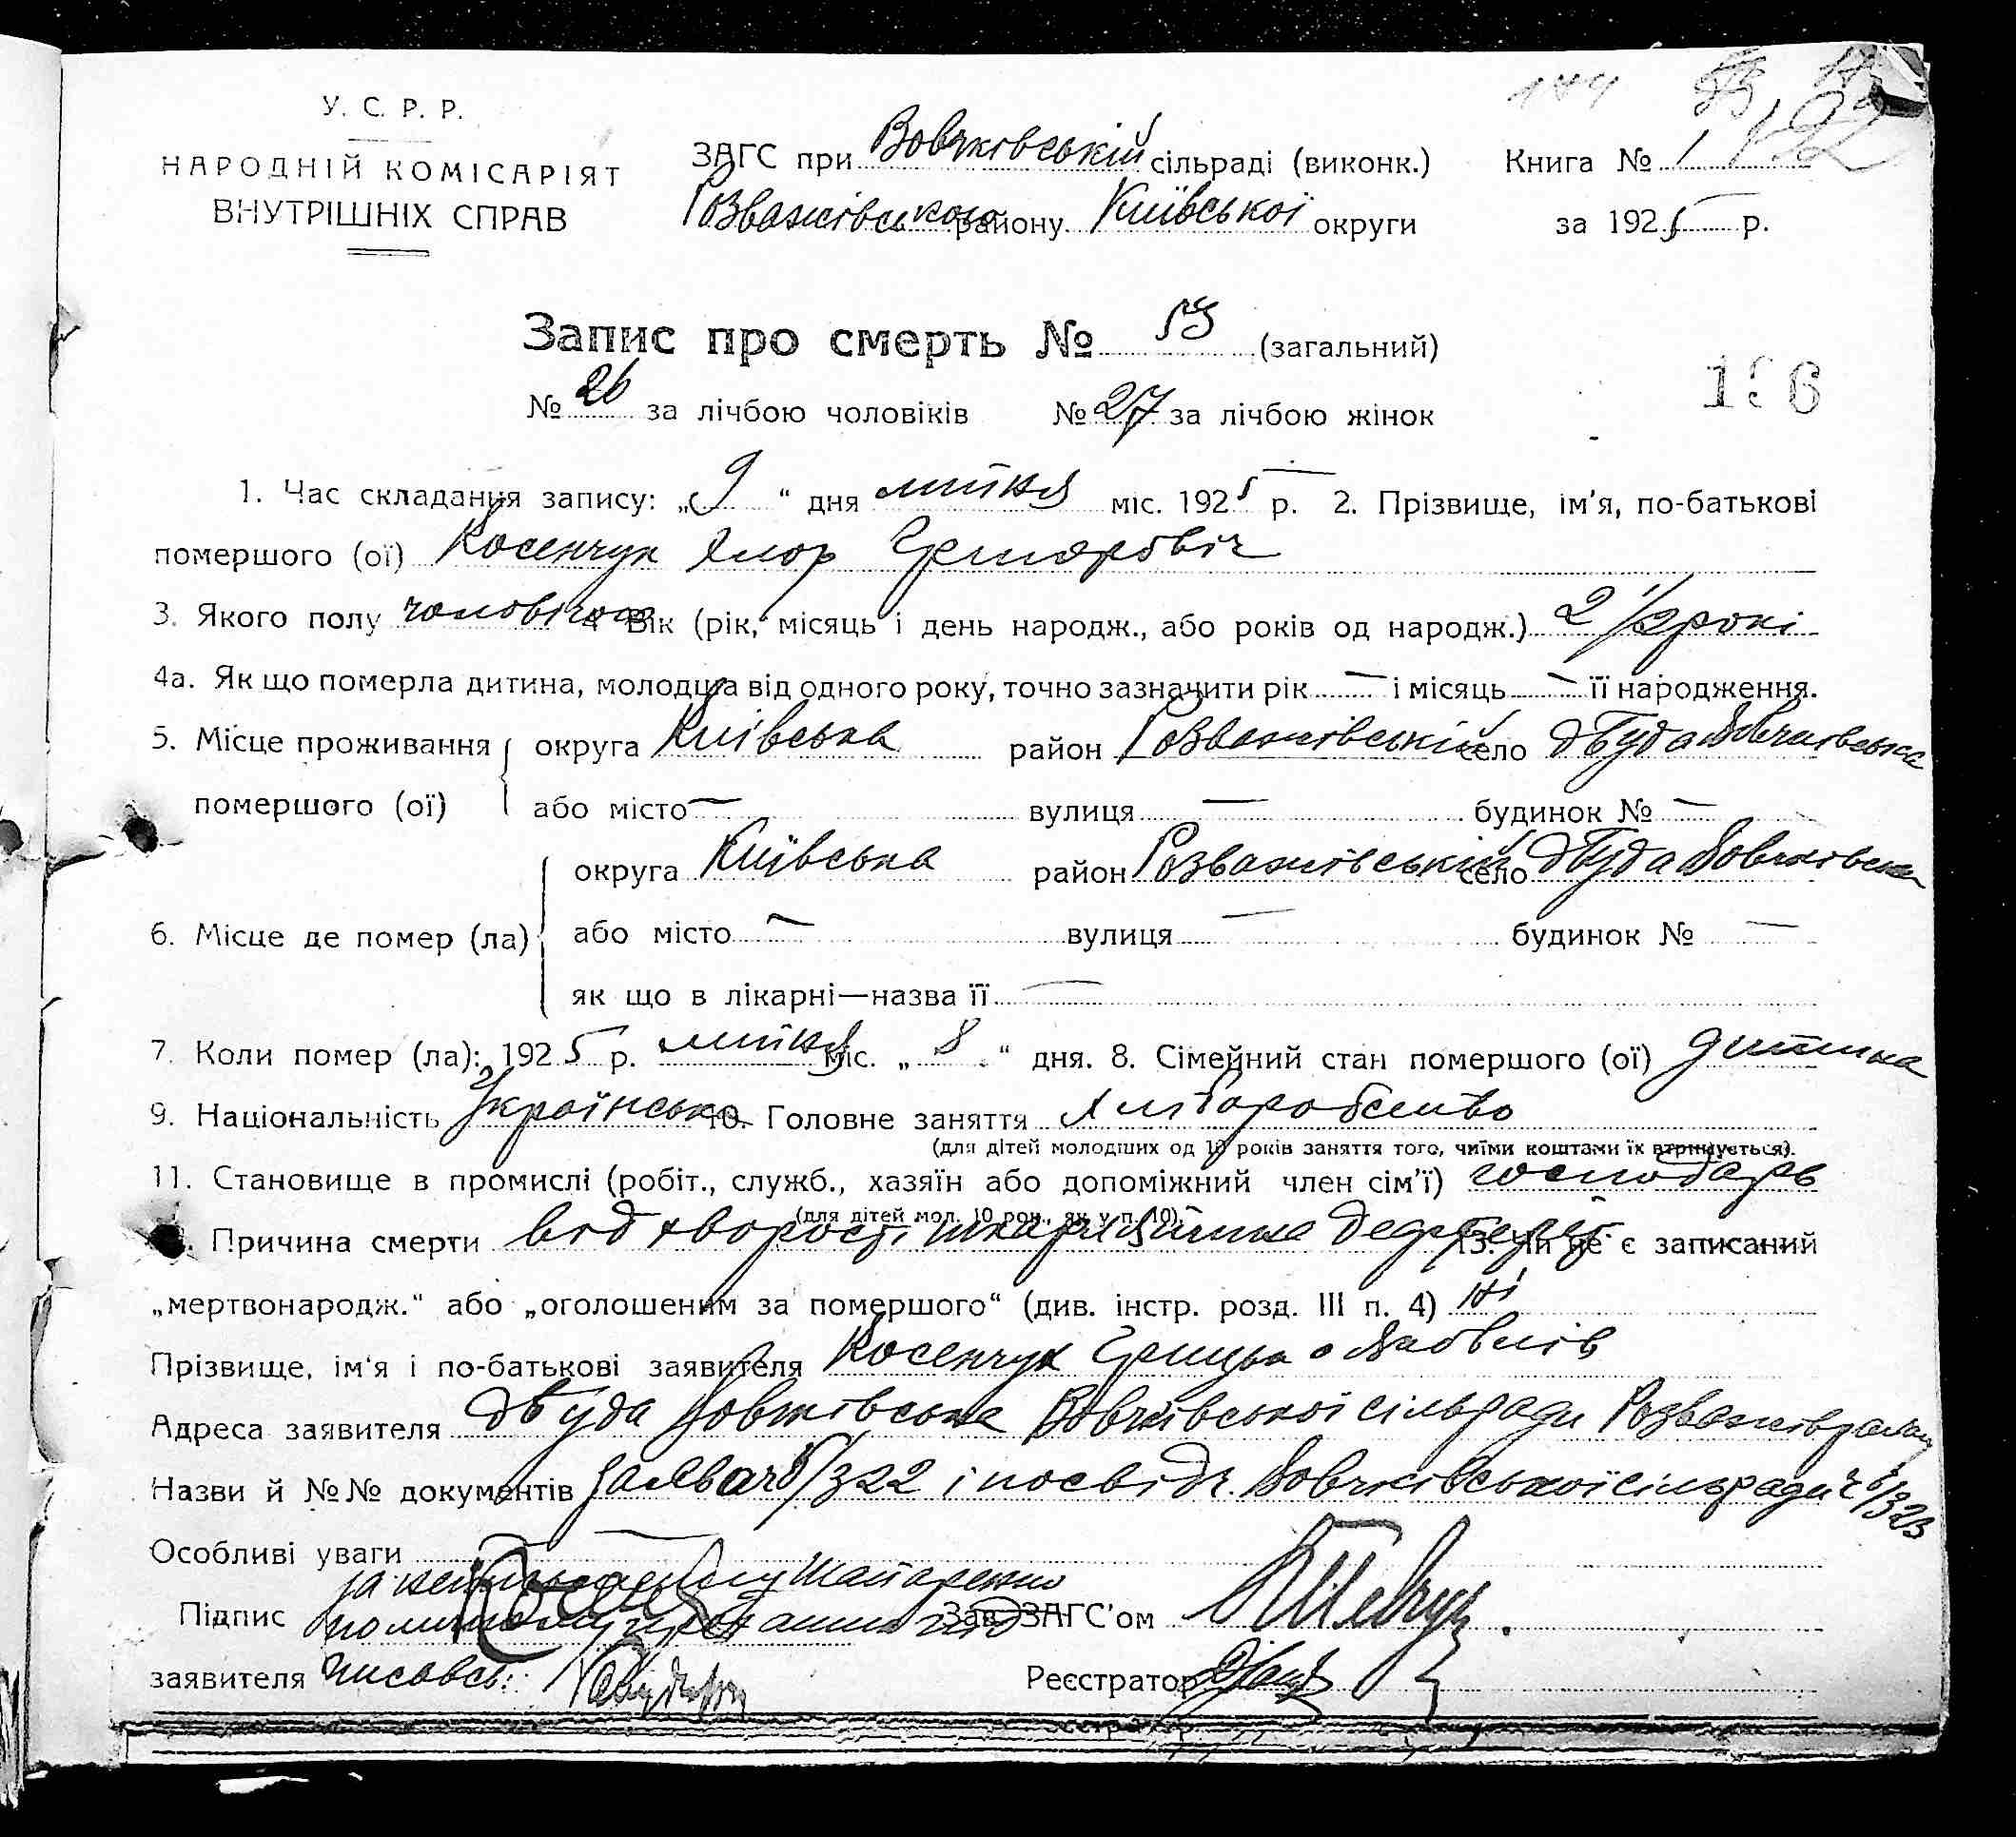 У. С. Р. Р.
НАРОДНІЙ КОМІСАРІЯТ
ВНУТРІШНІХ СПРАВ
ЗАГС при Вовчківській сільраді (виконк.)
Розважівського району Київської округи
Книга № 1
за 1925 р.
122
Запис про смерть № 53 (загальний)
№ 26 за лічбою чоловіків № 27 за лічбою жінок
196
1. Час складання запису: „9“ дня липня міс. 1925 р. 2. Прізвище, ім'я, по-батькові
помершого (ої) Косенчук
3. Якого полу чоловічого 4 Вік (рік, місяць і день народж., або років од народж.) 2 1/2 рокі
4а. Як що померла дитина, молодша від одного року, точно зазначити рік — і місяць — її народження.
5. Місце проживання помершого (ої) округа Київська район Розважівський село Буда Вовчківська
або місто — вулиця — будинок № —
6. Місце де помер (ла) округа Київська район Розважівський село Буда Вовчківська
або місто — вулиця — будинок № —
як що в лікарні—назва її —
7. Коли помер (ла): 1925 р. липня міс. „8“ дня. 8. Сімейний стан помершого (ої) дитина
9. Національність Українська 10. Головне заняття Хліборобство
(для дітей молодших од 10 років заняття того, чиїми коштами їх втримується).
11. Становище в промислі (робіт., служб., хазяїн або допоміжний член сім'ї) господарь
(для дітей мол. 10 рок., як у п. 10)
Причина смерти від хворості 13. Чи не є записаний
„мертвонародж.“ або „оголошеним за помершого“ (див. інстр. розд. III п. 4) Ні
Прізвище, ім'я і по-батькові заявителя Косенчук Грицько Яковлів
Адреса заявителя Буда Вовчківська Вовчківської сільради
Назви й №№ документів заява ч 5/322 і посвідч. Вовчківської сільради ч 6/323
Особливі уваги —
за неписьменому
Підпис Зав. ЗАГС'ом
заявителя Реєстратор